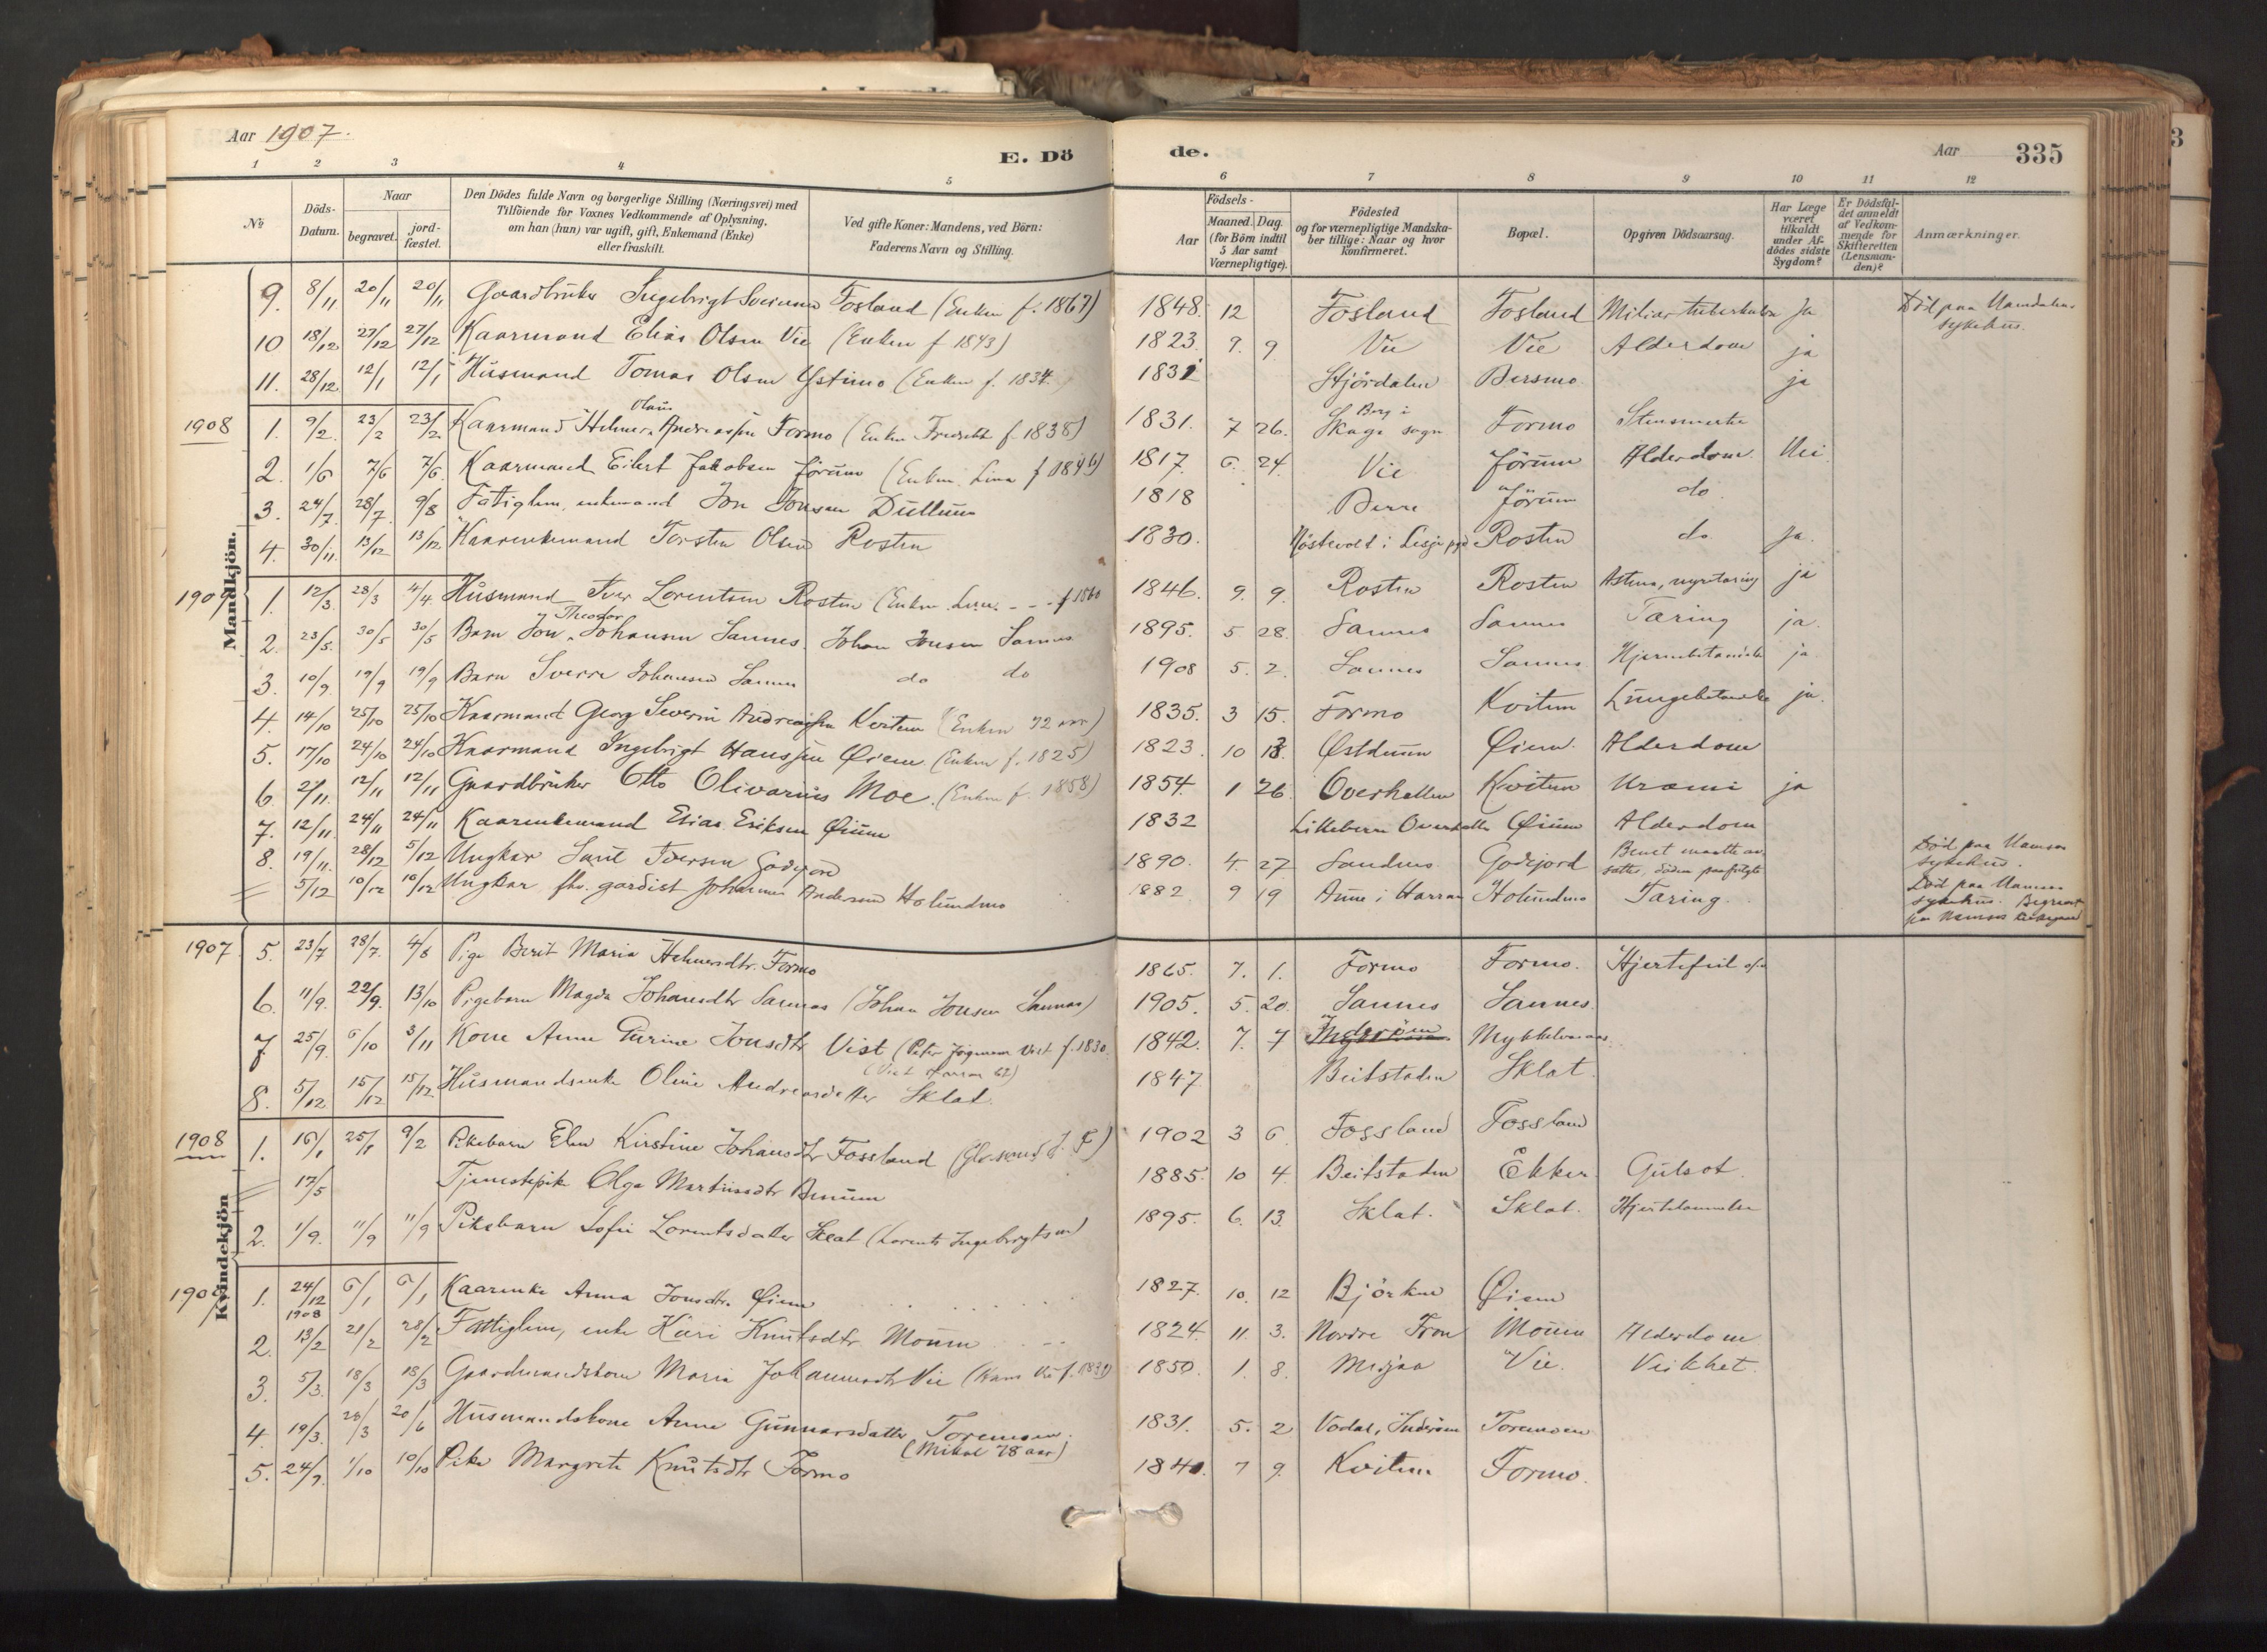 Aar 1907.
E. Dö de.
Aar 335
1 2 3 4 5 6 7 8 9 10 11 12
No
Döds-Datum.
Naar
begravet.
jord-fæstet.
Den Dödes fulde Navn og borgerlige Stilling (Næringsvei) med
Tilföiende for Voxnes Vedkommende af Oplysning,
om han (hun) var ugift, gift, Enkemand (Enke)
eller fraskilt.
Ved gifte Koner: Mandens, ved Börn:
Faderens Navn og Stilling.
Födsels-
Aar
Maaned. Dag.
(for Börn indtil
5 Aar samt
Værnepligtige).
Födested
og for værnepligtige Mandska-
ber tillige: Naar og hvor
konfirmeret.
Bopæl.
Opgiven Dödsaarsag.
Har Læge
været
tilkaldt
under Af-
dödes sidste
Sygdom?
Er Dödsfal-
det anmeldt
af Vedkom-
mende for
Skifteretten
(Lensman-
den)?
Anmærkninger.
Mandkjön.
9. 8/11 20/11 20/11 Gaardbruker Ingebrigt Fosland (Enken f. 1867) 1848. 12 Fosland Fosland Miliær tuberkulose Ja Död paa Namdalens sykehus.
10 18/12 27/12 27/12 Kaarmand Elias Olsen Vie (Enken f 1843) 1823. 9. 9. Vie Vie Alderdom ja
11. 28/12 12/1 12/1 Husmand Tomas Olsen (Enken f. 1834.) Stjördalen Bersmo. ja
1908 1. 9/2. 23/2 23/2. Kaarmand Helmer Olaus Andreassen Formo (Enken Fredrikke f. 1838) 1831. 7 26. Berg i Skage sogn Formo
2. 1/6 7/6 7/6. Kaarmand Eilert Jakobsen Jörum (Enken Lina f 1846) 1817. 6. 24. Vie Jörum Alderdom. Nei.
3. 24/7. 28/7. 9/8 Fattiglem, enkemand Jon Jonsen Dullum 1818 Berre Jörum do
4. 30/11. 13/12 13/12 Kaarenkemand Torsten Olsen Rosten 1830. i Lesja pgd Rosten do. Ja.
1909 1. 12/3. 28/3 4/4. Husmand Iver Lorentsen Rosten 1846. 9. 9. Rosten Rosten Astma, nyretæring ja
2. 23/5. 30/5 30/5 Barn Jon Theodor Johansen Sannes. Johan Jonsen Sannes 1895. 5 28. Sannes Sannes Tæring ja.
3. 10/9. 19/9 19/9 Barn Sverre Johansen Sannes do do 1908 5. 2. Sannes Sannes Hjernebetændelse ja.
4. 14/10 25/10 25/10 Kaarmand Georg Severin Andreassen Kvitem (Enken 72 aar) 1835. 3 15. Formo Kvitem Lungebetændelse ja.
5. 17/10 24/10 24/10 Kaarmand Ingebrigt Hanssen Öiem. (Enken f. 1825) 1823. 10 Östduun Öiem. Alderdom
6. 2/11. 12/11 12/11 Gaardbruker Otto Olivarius Moe. (Enken f. 1858) 1854. 1 26. Overhallen Kvitem Uræmi ja
7. 12/11. 24/11 24/11 Kaarenkemand Elias Eriksen Öium 1832 Lilleberre Overhalla Öium Alderdom
8. 19/11. 28/12 5/12 Ungkar Saul Iversen Godejord 1890. 4. 27 Sandnes Godejord Benet maatte av-sættes, döden paafulgte Död paa Namsos sykehus.
5/12 10/12 10/12 Ungkar, fhv. gardist Johannes Andersen Holundmo 1882. 9 19 Aune i Harran Holundmo Tæring. Död paa Namsos sykehus. Begravet paa Namsos kirkegaard
Kvindekjön
1907. 5. 23/7 28/7. 4/8 Pige Berit Maria Helmersdtr. Formo 1865. 7. 1. Formo Formo. Hjertefeil
6. 11/9. 22/9. 13/10 Pigebarn Magda Johansdtr Sannes (Johan Jonsen Sannes) 1905. 5. 20. Sannes Sannes.
7. 25/9. 6/10 3/11 Kone Anne Jonsdtr Vist (Peter Vist f. 1830. 1842. 7. 7 Inderöen
8. 5/12 15/12 15/12 Husmandsenke Oline Andreasdatter Sklat. 1847. Beitstaden Sklat.
1908 1. 16/1 25/1 9/2 Pikebarn Elen Kirstine Johansdtr Fossland 1902 3 6. Fossland Fossland
17/5 Tjenestepike Olga Martinsdtr 1885. 10 4. Beitstaden Ekker Gulsot.
2. 1/9. 11/9 11/9 Pikebarn Sofie Lorentsdatter Sklat (Lorents Ingebrigtsen) 1895. 6. 13. Sklat. Sklat. Hjertelammelse
1909 1. 24/12 1908 6/1 6/1 Kaarenke Anna Jonsdtr. Öiem 1827. 10. 12 Björken Öiem
2. 13/2 21/2 28/2 Fattiglem, enke Kari Knutsdtr. Moum 1824. 11. 3. Nordre Fron Moum Alderdom
3. 5/3. 18/3 18/3 Gaardmandskone Maria Johannesdtr Vie 1850. 1. 8. Vie. Veikhet.
4. 19/3. 28/3 20/6 Husmandskone Anne Gunnarsdatter Toremoen. (Mikal 78 aar) 1831. 5. 2 Vodal, Inderöen Toremoen
5. 24/9. 1/10 10/10 Pike Margrete Knutsdtr Formo 1840. 7 9. Kvitem Formo.